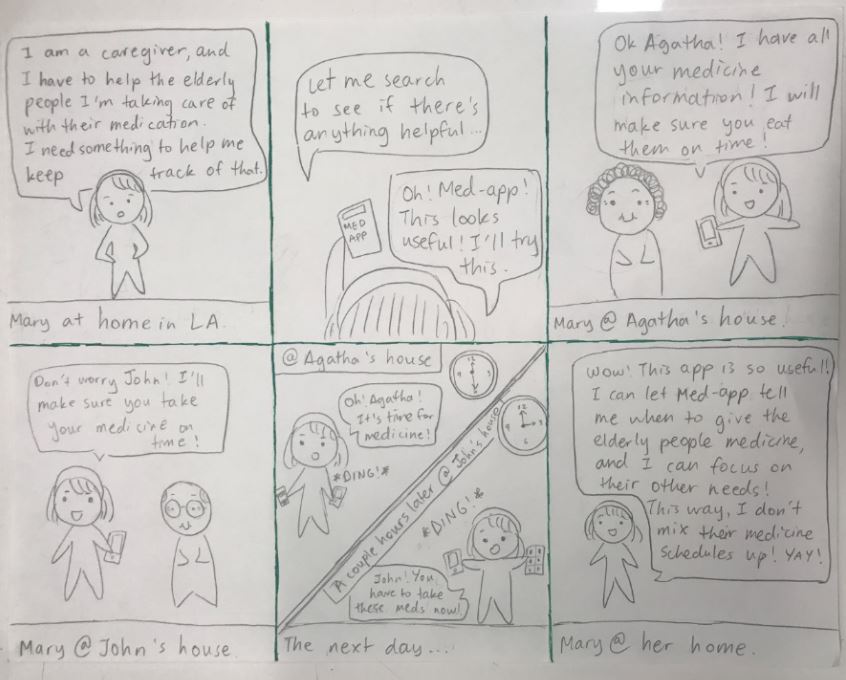 I am a caregiver, and
I have to help the elderly
people I'm taking care of
with their medication.
I need something to help me
keep track of that.
Mary at home in LA.
Let me search
to see if there's
anything helpful...
MED
APP
Oh! Med-app!
This looks
useful! I'll try
this.
Ok Agatha! I have all
your medicine
information! I will
make sure you eat
them on time!
Mary @ Agatha's house.
Don't worry John! I'll
make sure you take
your medicine on
time!
Mary @ John's house.
@ Agatha's house
12
Oh! Agatha!
It's time for
medicine!
*DING!*
A couple hours later @ John's house
12
3
6
9
*DING!*
John! You
have to take
these meds now!
The next day....
Wow! This app is so useful!
I can let Med-app tell
me when to give the
elderly people medicine,
and I can focus on
their other needs!
This way, I don't
mix their medicine
schedules up! YAY!
Mary @ her home.